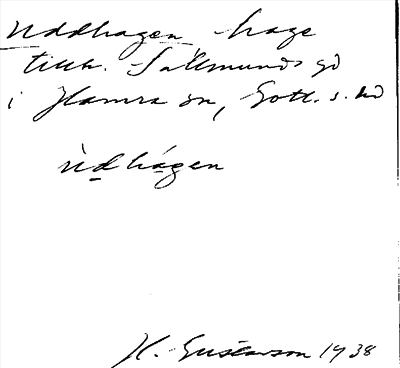 Uddhagen hage
tillh. Sallmunds gd
i Hamra sn, Gotl. s. hd
ùdhágen
H. Gustavson 1938